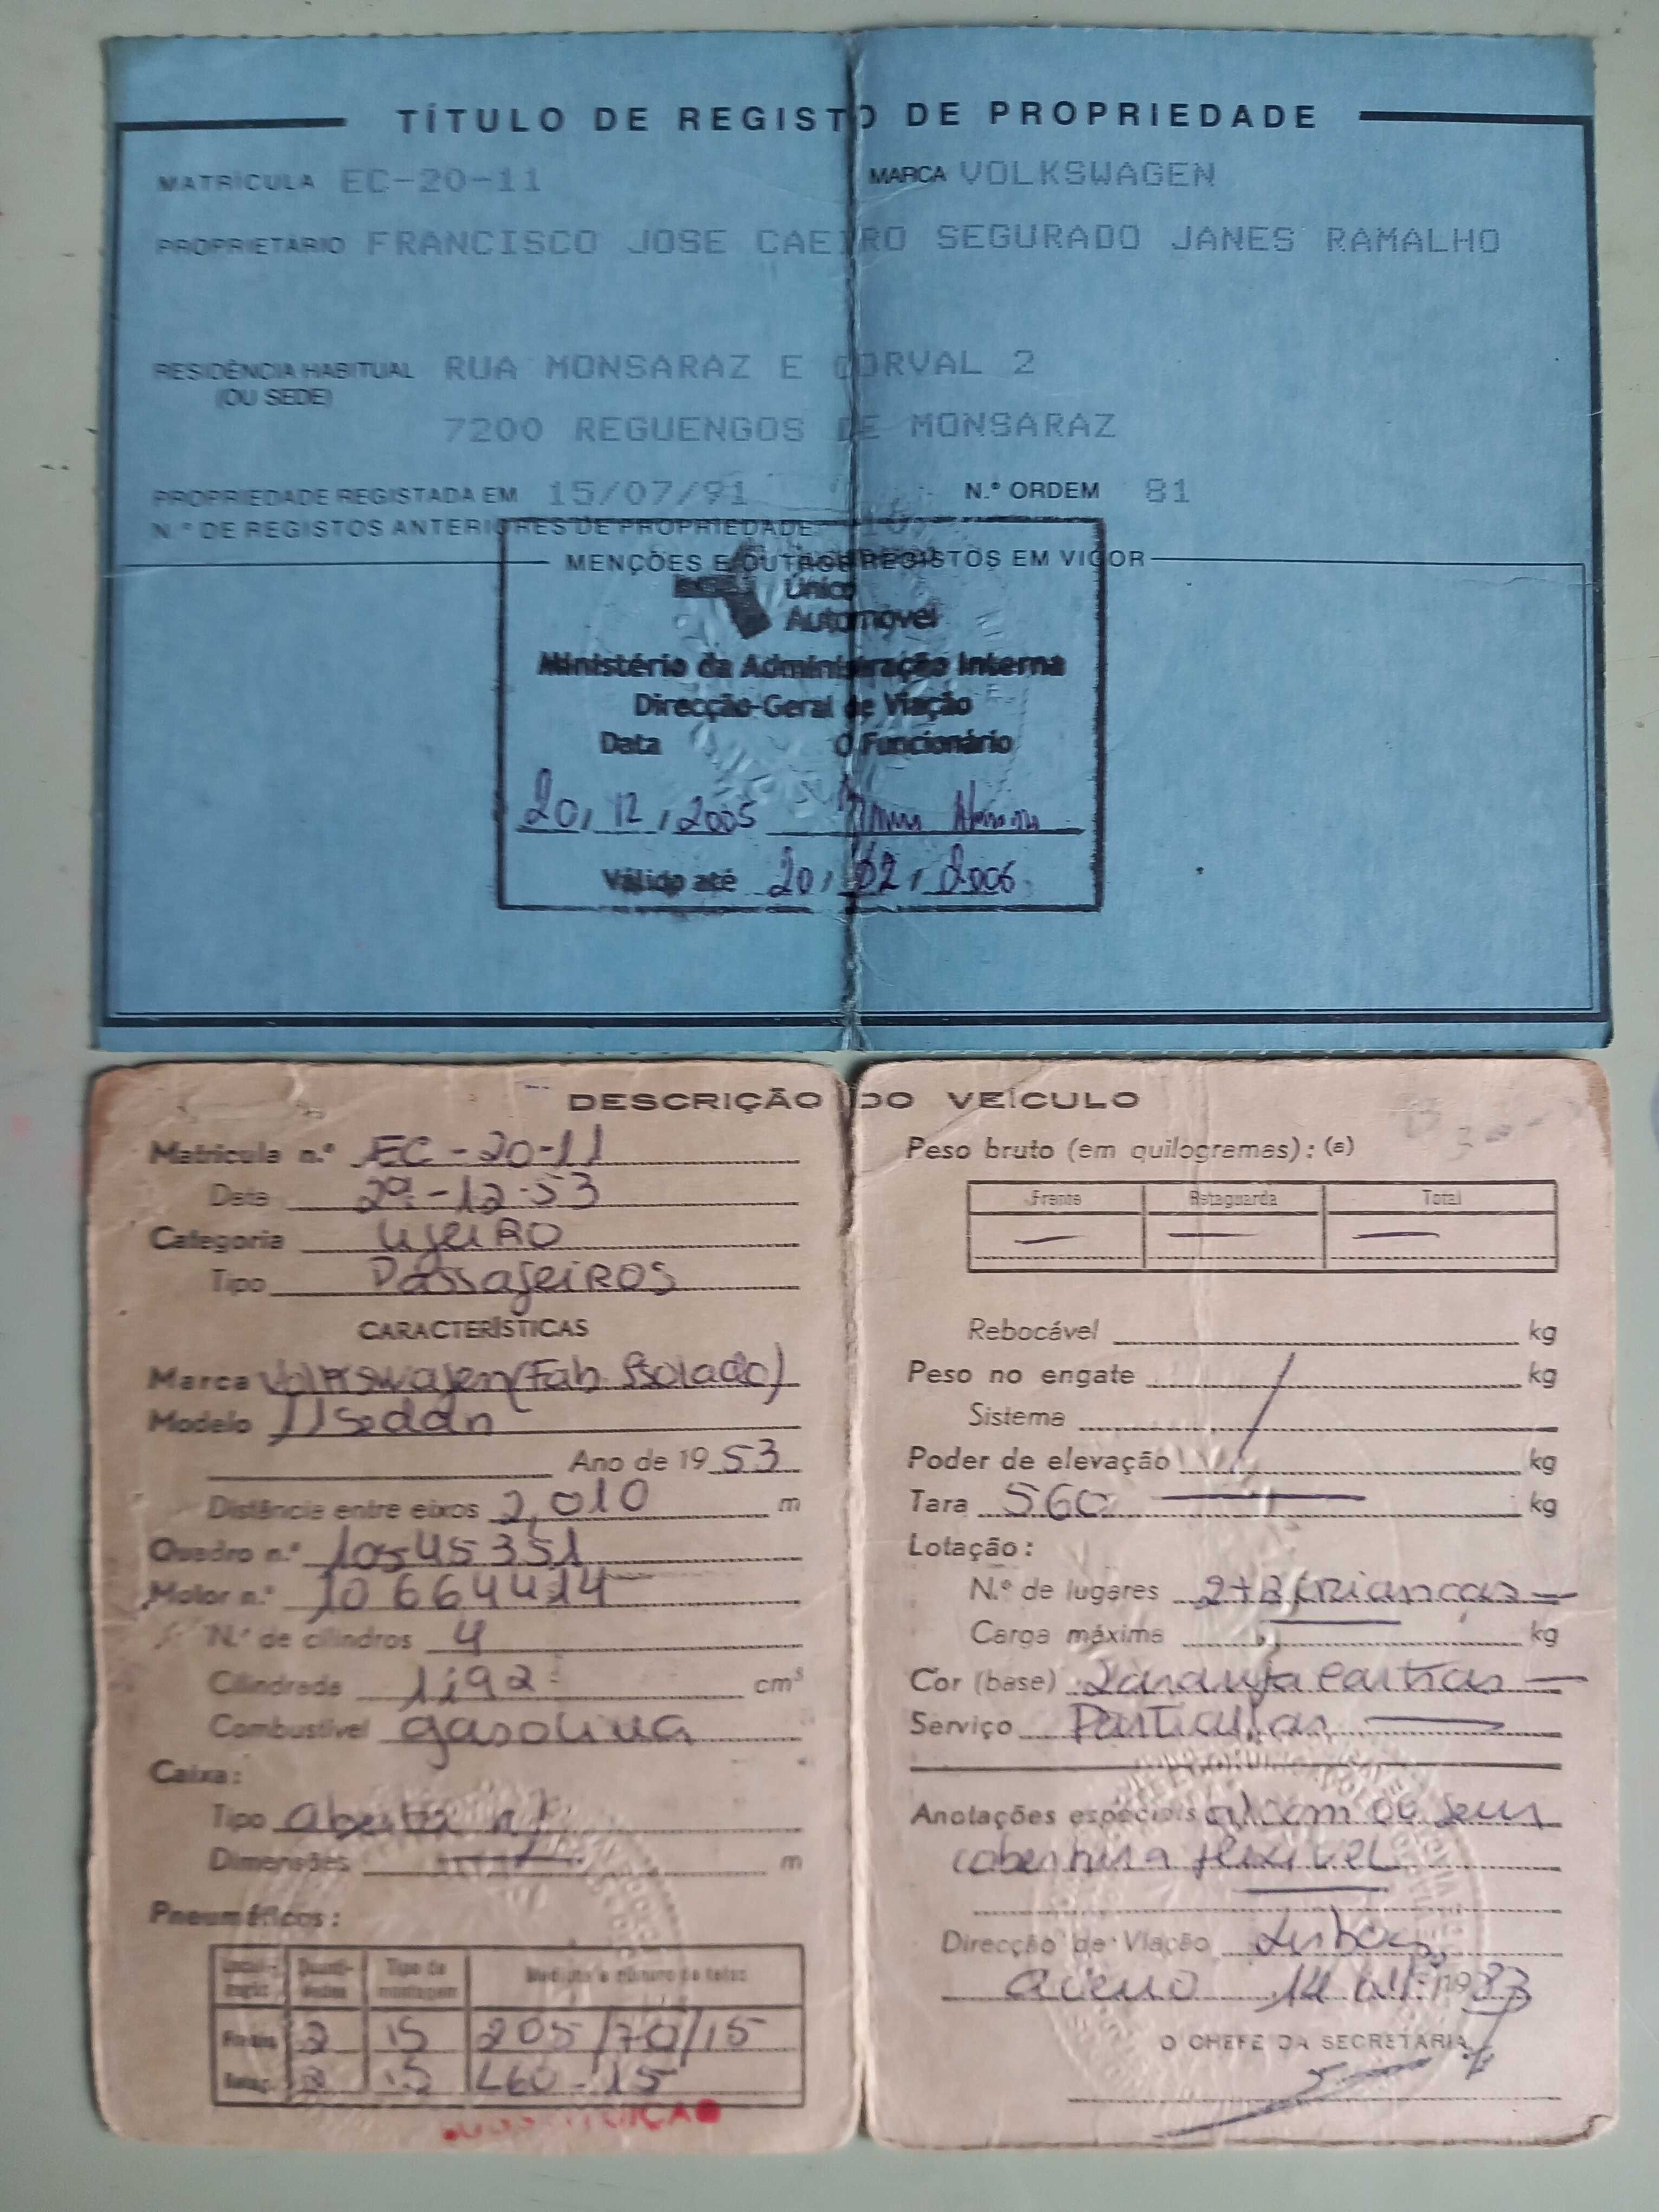 TÍTULO DE REGISTO DE PROPRIEDADE
MATRÍCULA EC-20-11 MARCA VOLKSWAGEN
PROPRIETÁRIO FRANCISCO JOSE CAEIRO SEGURADO JANES RAMALHO
RESIDÊNCIA HABITUAL RUA MONSARAZ E CORVAL 2
(OU SEDE)
7200 REGUENGOS DE MONSARAZ
PROPRIEDADE REGISTADA EM 15/07/91 N.º ORDEM 81
N.º DE REGISTOS ANTERIORES DE PROPRIEDADE
MENÇÕES E OUTROS REGISTOS EM VIGOR
Único
Automóvel
Ministério da Administração Interna
Direcção-Geral de Viação
Data O Funcionário
20/12/2005
Válido até 20/02/2006
DESCRIÇÃO DO VEÍCULO
Matrícula n.º EC-20-11
Data 29-12-53
Categoria LigeiRO
Tipo PassageiROS
CARACTERÍSTICAS
Marca Volkswagen (Fab. Isolado)
Modelo 11 Sedan
Ano de 1953
Distância entre eixos 2,010 m
Quadro n.º 10545351
Motor n.º 10664414
N.º de cilindros 4
Cilindrada 1192 cm³
Combustível gasolina
Caixa:
Tipo aberta
Dimensões m
Pneumáticos:
Locali-zação Quanti-dades Tipo de montagem Medidas e número de telas
Frente 2 15 205/70/15
Retag. 2 15 L60-15
SUBSTITUIÇÃO
Peso bruto (em quilogramas): (a)
Frente Retaguarda Total
— — —
Rebocável kg
Peso no engate kg
Sistema
Poder de elevação kg
Tara 560 kg
Lotação:
N.º de lugares 2+2 crianças
Carga máxima kg
Cor (base)
Serviço Particular
Anotações especiais a) com ou sem
cobertura flexíVEL
Direcção de Viação Lisboa
1983
O CHEFE DA SECRETARIA,